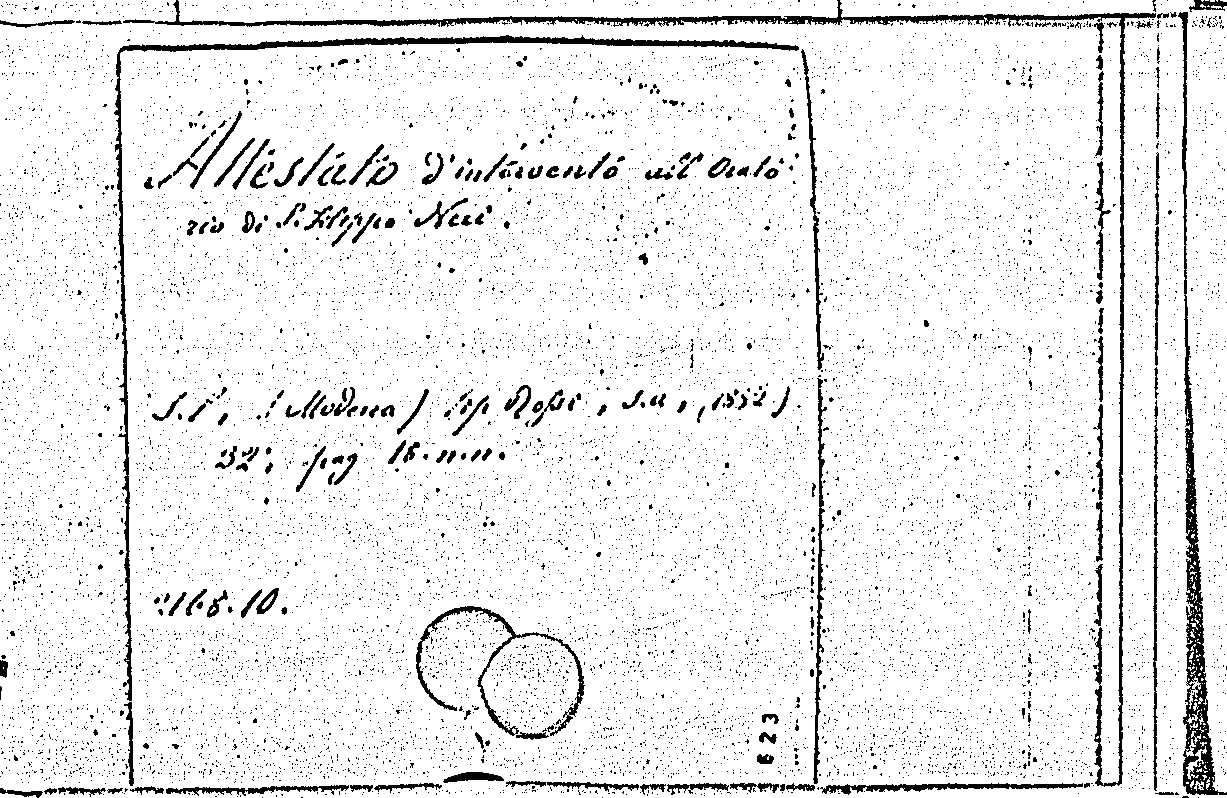 Attestato d'intervento all' Orato
rio di S. Filippo Neri.
S. l., (Modena) tip Rossi, s.a, (1852)
32°, pag 16. n.n.
216.8.10.
623